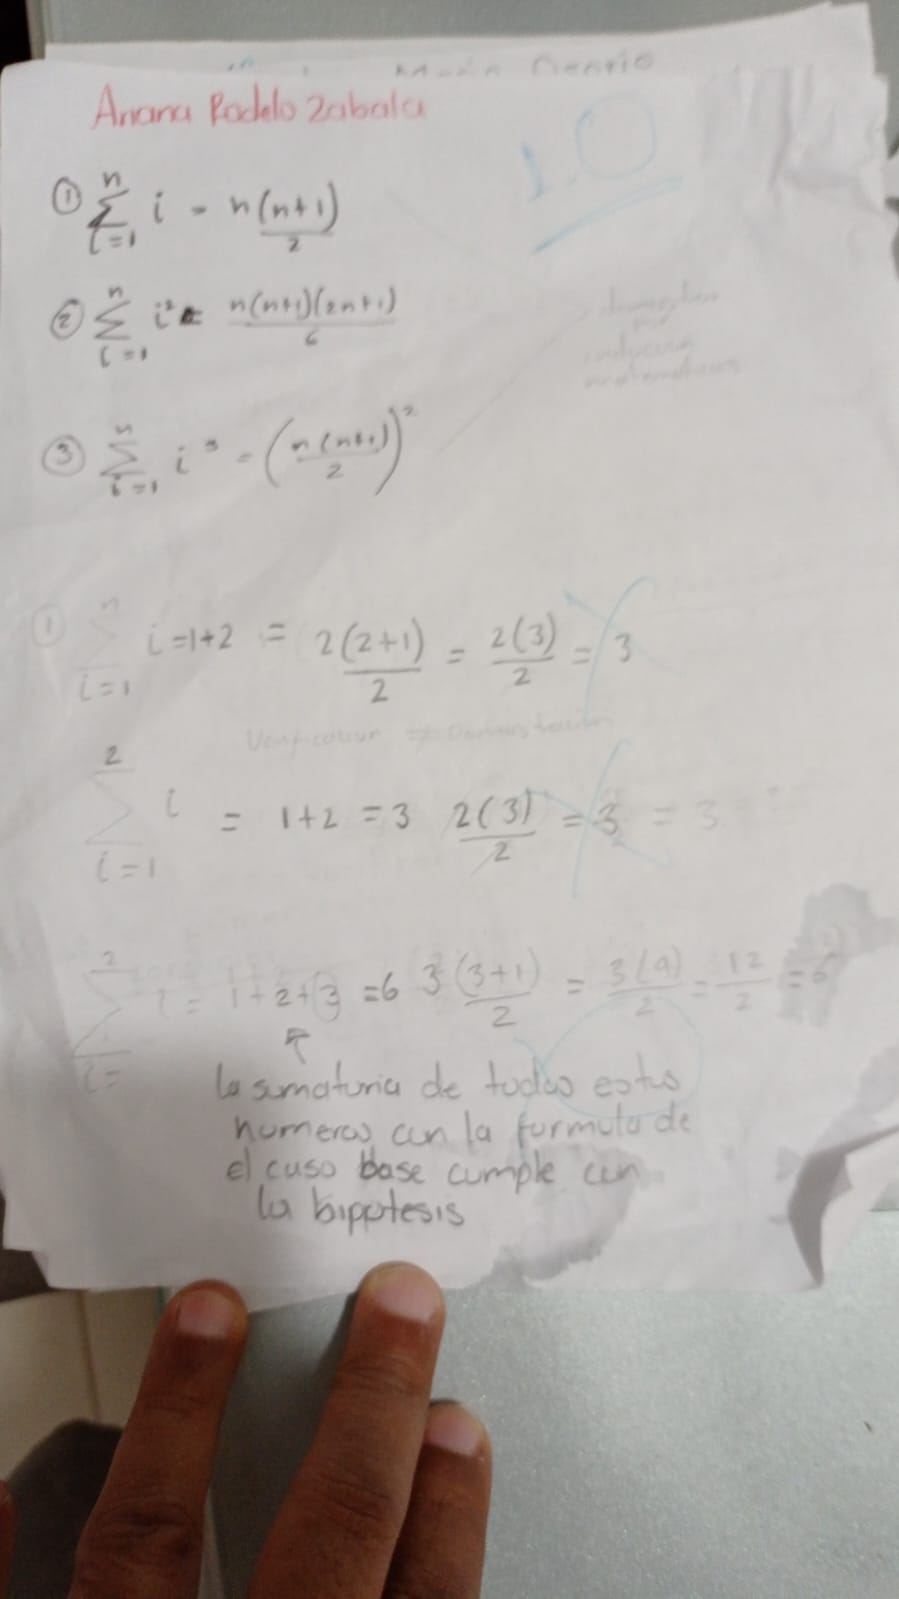 Ariana Rodelo Zabala
1.0
① \sum_{i=1}^{n} i = \frac{n(n+1)}{2}
② \sum_{i=1}^{n} i² = \frac{n(n+1)(2n+1)}{6}
③ \sum_{i=1}^{n} i³ = \left(\frac{n(n+1)}{2}\right)^2
por
matematicas
① \sum_{i=1}^{n} i = 1+2 = \frac{2(2+1)}{2} = \frac{2(3)}{2} = 3
Verificacion ≠ Demostracion
\sum_{i=1}^{2} i = 1+2 = 3 \frac{2(3)}{2} = 3 = 3
\sum_{i=}^{2} i = 1+2+3 = 6 \frac{3(3+1)}{2} = \frac{3(4)}{2} = \frac{12}{2} = 6
↑
la sumaturia de todos estos
numeros con la formula de
el caso base cumple con
la hipotesis